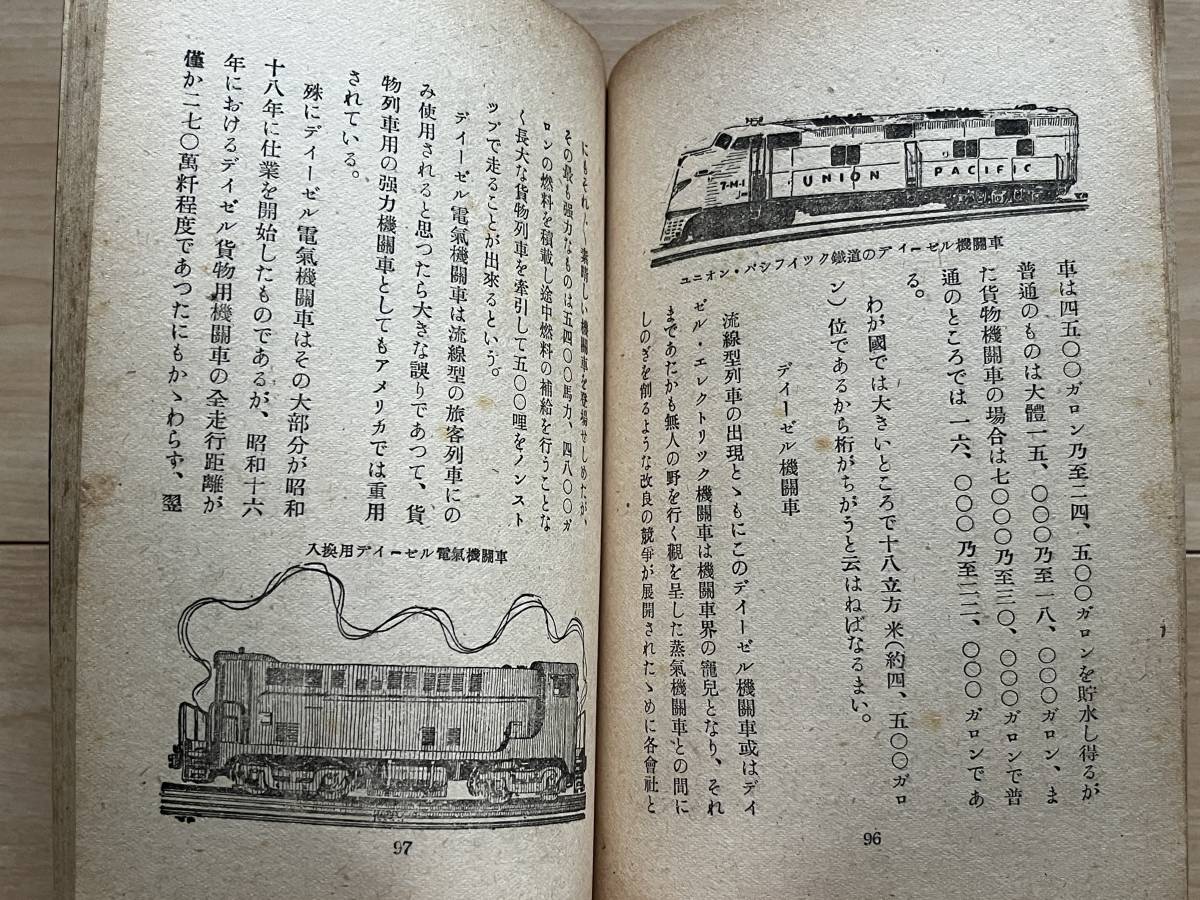 7-M-1
UNION PACIFIC
ユニオン・パシフイツク鐵道のデイーゼル機關車
車は四五〇〇ガロン乃至二四、五〇〇ガロンを貯水し得るが
普通のものは大體一五、〇〇〇乃至一八、〇〇〇ガロン、ま
た貨物機關車の場合は七〇〇〇乃至三〇、〇〇〇ガロンで普
通のところでは一六、〇〇〇乃至二二、〇〇〇ガロンであ
る。
わが國では大きいところで十八立方米(約四、五〇〇ガロ
ン)位であるから桁がちがうと云はねばなるまい。
デイーゼル機關車
流線型列車の出現とゝもにこのデイーゼル機關車或はデイ
ゼル・エレクトリツク機關車は機關車界の寵兒となり、それ
まであたかも無人の野を行く觀を呈した蒸氣機關車との間に
しのぎを削るような改良の競爭が展開されたゝめに各會社と
96
にもそれ〴〵素晴しい機關車を登場せしめたが、
その最も强力なものは五四〇〇馬力、四八〇〇ガ
ロンの燃料を積載し途中燃料の補給を行うことな
く長大な貨物列車を牽引して五〇〇哩をノンスト
ツプで走ることが出來るという。
デイーゼル電氣機關車は流線型の旅客列車にの
み使用されると思つたら大きな誤りであつて、貨
物列車用の强力機關車としてもアメリカでは重用
されている。
殊にデイーゼル電氣機關車はその大部分が昭和
十八年に仕業を開始したものであるが、昭和十六
年におけるデイゼル貨物用機關車の全走行距離が
僅か二七〇萬粁程度であつたにもかゝわらず、翌
入換用デイーゼル電氣機關車
97